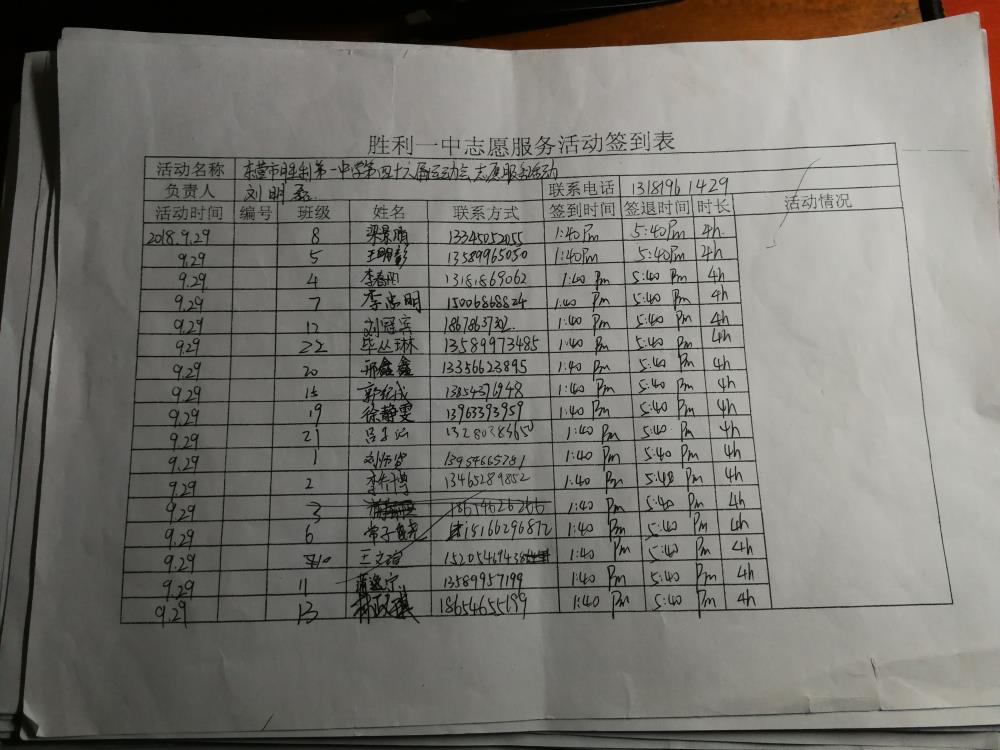 胜利一中志愿服务活动签到表
活动名称 东营市胜利第一中学第四十六届运动会志愿服务活动
负责人 刘明磊 联系电话 13181961429
活动时间 编号 班级 姓名 联系方式 签到时间 签退时间 时长 活动情况
2018.9.29 8 13345052055 1:40Pm 5:40Pm 4h.
9.29 5 王明彰 13589965050 1:40Pm 5:40Pm 4h
9.29 4 李春阳 13181869062 1:40 Pm 5:40 Pm 4h
9.29 7 李浩明 15006868824 1:40 Pm 5:40 Pm 4h
9.29 12 刘冠宾 1:40 Pm 5:40 Pm 4h
9.29 22 毕丛琳 13589973485 1:40 Pm 5:40 Pm 4h
9.29 20 邢鑫鑫 13356623895 1:40 Pm 5:40 Pm 4h
9.29 15 郭纪成 13854376948 1:40 Pm 5:40 Pm 4h
9.29 19 徐静雯 13963393959 1:40 Pm 5:40 Pm 4h
9.29 21 1:40 Pm 5:40 Pm 4h
9.29 1 1:40 Pm 5:40 Pm 4h
9.29 2 13465289852 1:40 Pm 5:40 Pm 4h
9.29 3 18654626266 1:40 Pm 5:40 Pm 4h
9.29 6 15166296872 1:40 Pm 5:40 Pm 4h
9.29 10 1:40 Pm 5:40 Pm 4h
9.29 11 13589957199 1:40 Pm 5:40 Pm 4h
9.29 13 18654655199 1:40 Pm 5:40 Pm 4h